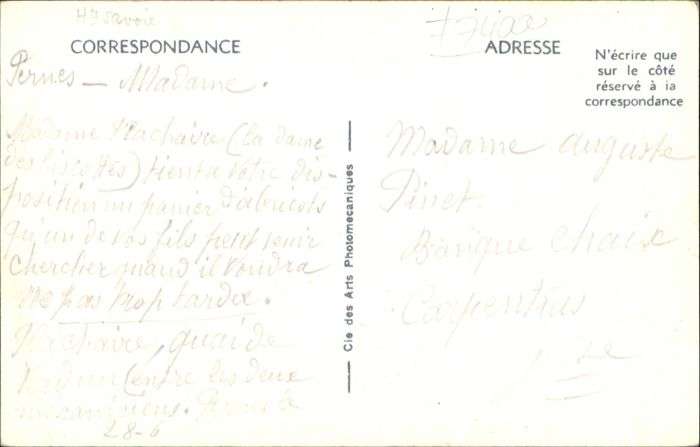 H Savoie
CORRESPONDANCE
ADRESSE
N'écrire que
sur le côté
réservé à la
correspondance
Pernes — Madame.
Madame Machaire (la dame
des biscottes) tient à votre dis-
position un panier d'abricots
qu'un de vos fils peut venir
chercher quand il voudra
Ne pas trop tarder.
Machaire, quai de
(entre les deux
mécaniciens. Pernes
28-6
Cie des Arts Photomecaniques
Madame Auguste
Pinet
Banque Chaix
Carpentras
Vse